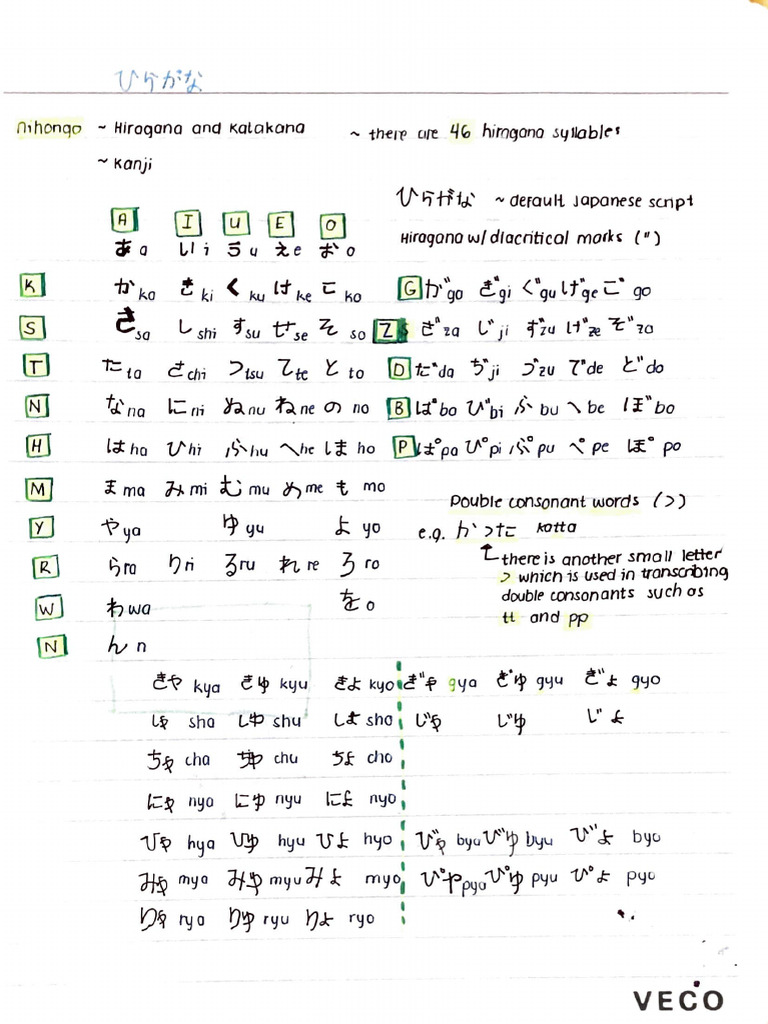 ひらがな
nihongo ~ Hiragana and Katakana ~ there are 46 hiragana syllables
~ Kanji
ひらがな ~ default Japanese script
A I U E O
あ a い i う u え e お o Hiragana w/ diacritical marks (")
K か ka き ki く ku け ke こ ko G が ga ぎ gi ぐ gu げ ge ご go
S さ sa し shi す su せ se そ so Z ざ za じ ji ず zu げ ze ぞ zo
T た ta さ chi つ tsu て te と to D だ da ぢ ji づ zu で de ど do
N な na に ni ぬ nu ね ne の no B ば ba び bi ふ bu へ be ぼ bo
H は ha ひ hi ふ hu へ he ほ ho P ぱ pa ぴ pi ぷ pu ぺ pe ぽ po
M ま ma み mi む mu め me も mo
Double consonant words (っ)
Y や ya ゆ yu よ yo e.g. かった katta
R ら ra り ri る ru れ re ろ ro there is another small letter
っ which is used in transcribing
W わ wa を o double consonants such as
tt and pp
N ん n
きゃ kya きゅ kyu きょ kyo ぎゃ gya ぎゅ gyu ぎょ gyo
しゃ sha しゅ shu しょ sho じゃ じゅ じょ
ちゃ cha ちゅ chu ちょ cho
にゃ nya にゅ nyu にょ nyo
ひゃ hya ひゅ hyu ひょ hyo びゃ bya びゅ byu びょ byo
みゃ mya みゅ myu みょ myo ぴゃ pya ぴゅ pyu ぴょ pyo
りゃ rya りゅ ryu りょ ryo
VECO